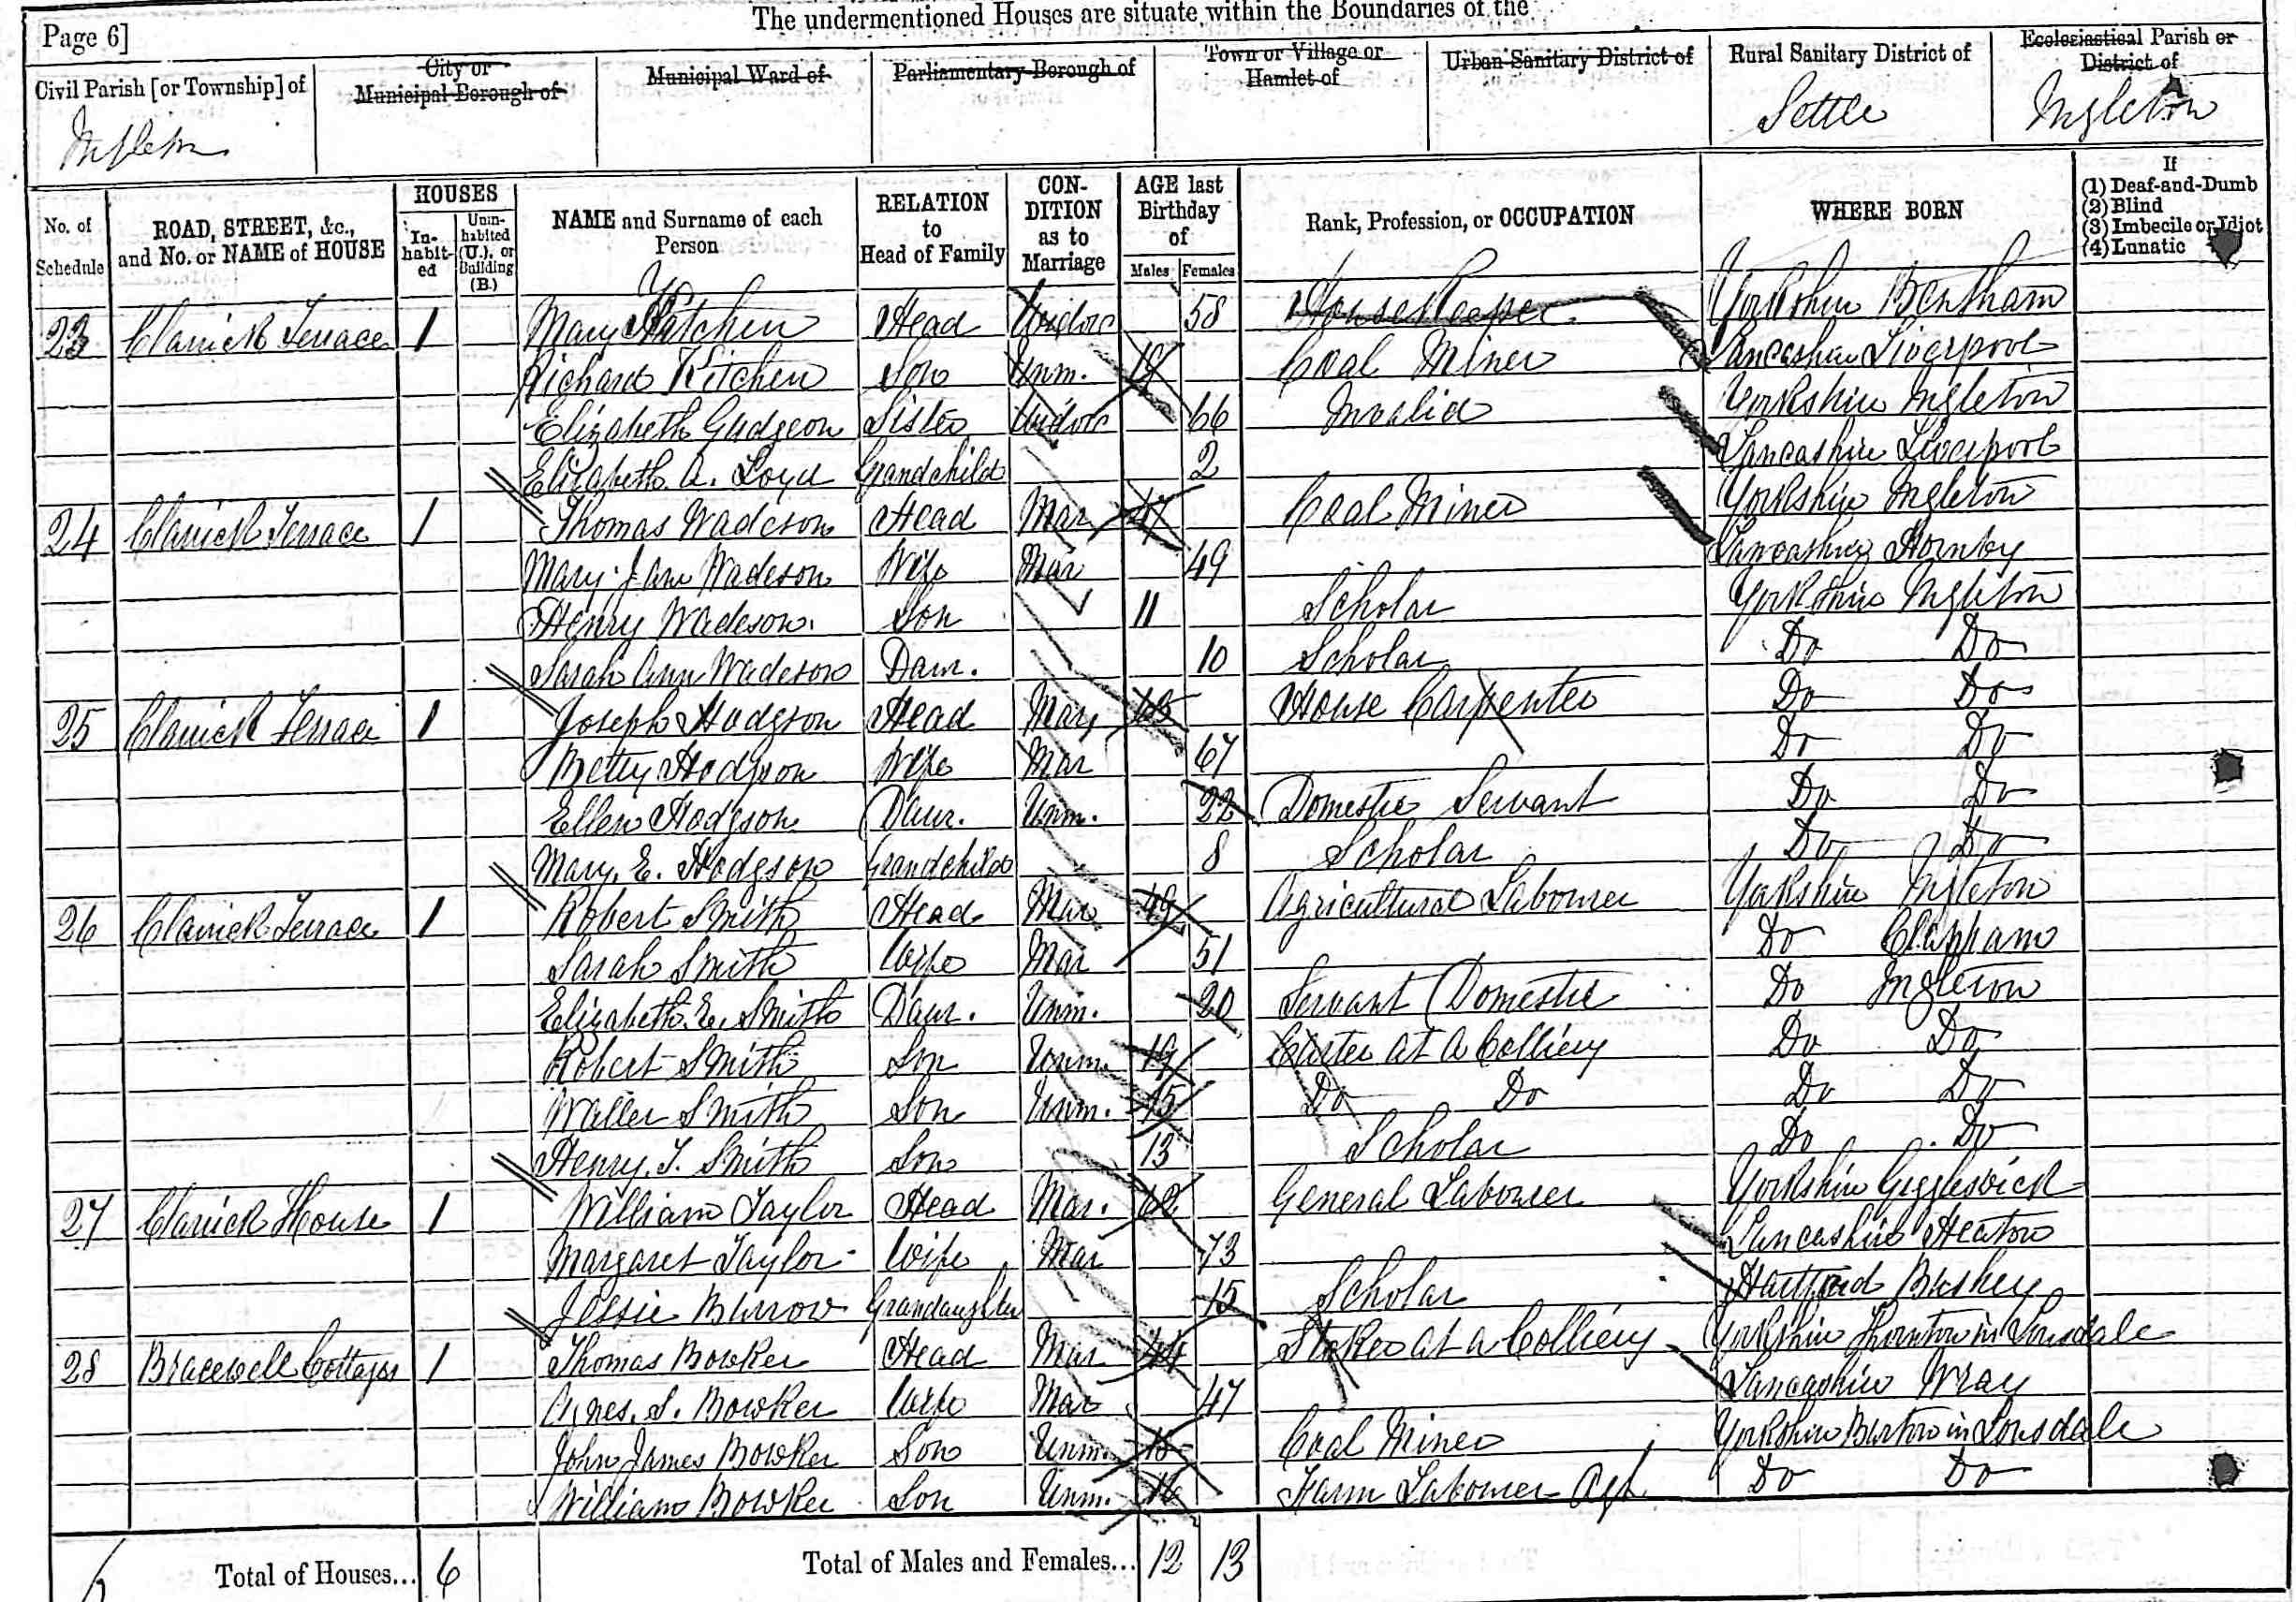 The undermentioned Houses are situate within the Boundaries of the
Page 6]
Civil Parish [or Township] of
City or Municipal Borough of
Municipal Ward of
Parliamentary Borough of
Town or Village or Hamlet of
Urban Sanitary District of
Rural Sanitary District of
Ecclesiastical Parish or District of
Ingleton
Settle
Ingleton
No. of Schedule
ROAD, STREET, &c., and No. or NAME of HOUSE
HOUSES
In-habit-ed
Unin-habited (U.), or Building (B.)
NAME and Surname of each Person
RELATION to Head of Family
CON-DITION as to Marriage
AGE last Birthday of
Males
Females
Rank, Profession, or OCCUPATION
WHERE BORN
If
(1) Deaf-and-Dumb
(2) Blind
(3) Imbecile or Idiot
(4) Lunatic
23 Clarrick Terrace 1 Mary Kitchen Head Widow 58 House Keeper Yorkshire Bentham
Richard Kitchen Son Unm. 19 Coal Miner Lancashire Liverpool
Elizabeth Gudgeon Sister Widow 66 Invalid Yorkshire Ingleton
Elizabeth A. Loyd Grandchild 2 Lancashire Liverpool
24 Clarrick Terrace 1 Thomas Wadeson Head Mar 47 Coal Miner Yorkshire Ingleton
Mary Jane Wadeson Wife Mar 49 Lancashire Hornby
Henry Wadeson Son 11 Scholar Yorkshire Ingleton
Sarah Ann Wadeson Daur. 10 Scholar Do Do
25 Clarrick Terrace 1 Joseph Hodgson Head Mar House Carpenter Do Do
Betty Hodgson Wife Mar 67 Do Do
Ellen Hodgson Daur. Unm. 22 Domestic Servant Do Do
Mary E. Hodgson Grandchild 8 Scholar Do Do
26 Clarrick Terrace 1 Robert Smith Head Mar 49 Agricultural Labourer Yorkshire Ingleton
Sarah Smith Wife Mar 51 Do Clapham
Elizabeth E. Smith Daur. Unm. 20 Servant (Domestic Do Ingleton
Robert Smith Son Unm. 19 Carter at a Colliery Do Do
Walter Smith Son Unm. 15 Do Do Do Do
Henry T. Smith Son 13 Scholar Do Do
27 Clarrick House 1 William Taylor Head Mar. 62 General Labourer Yorkshire Giggleswick
Margaret Taylor Wife Mar 73 Lancashire Heaton
Jessie Burrow Grandaughter 15 Scholar Hartford Bushey
28 Bracewell Cottages 1 Thomas Bowker Head Mar 44 Stoker at a Colliery Yorkshire Thornton in Lonsdale
Agnes. S. Bowker Wife Mar 47 Lancashire Wray
John James Bowker Son Unm. Coal Miner Yorkshire Burton in Lonsdale
William Bowker Son Unm. 16 Farm Labourer Ag. Do Do
Total of Houses... 6
Total of Males and Females... 12 13